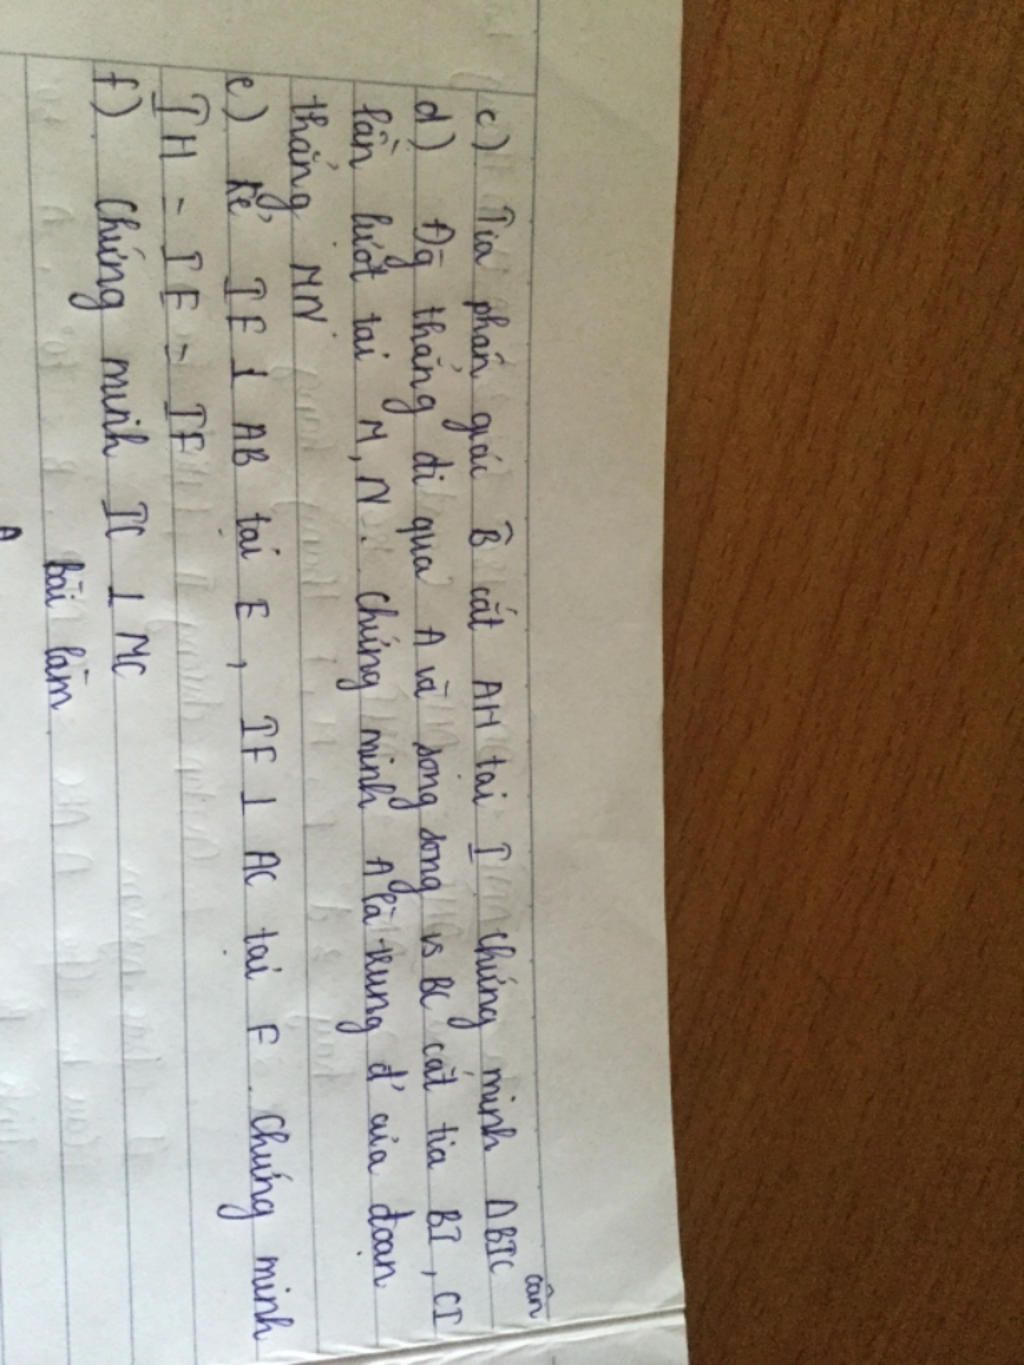 c) Tia phân giác B̂ cắt AH tại I chứng minh ΔBIC cân
d) Đg thẳng đi qua A và song song vs BC cắt tia BI, CI
lần lượt tại M, N. Chứng minh A là trung đ' của đoạn
thẳng MN
e) Kẻ IE ⊥ AB tại E, IF ⊥ AC tại F. Chứng minh
IH = IE = IF
f) Chứng minh IC ⊥ MC
Bài làm
A